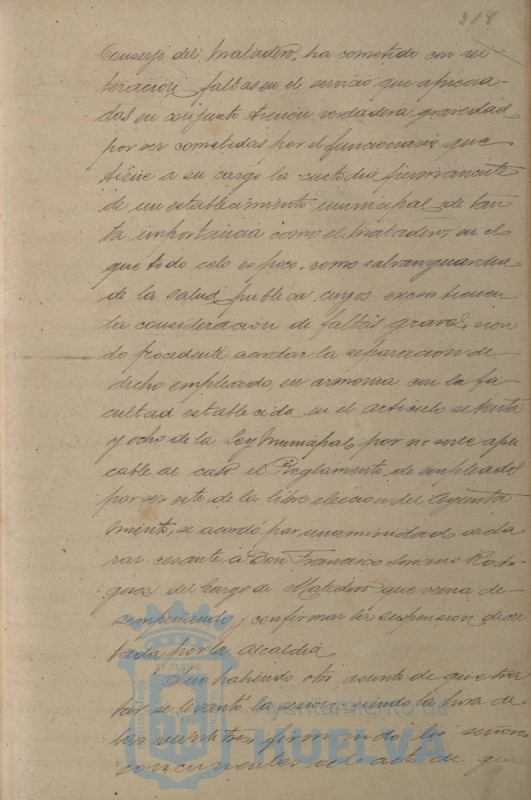 218
Conserje del Matadero, ha cometido con rei
teración faltas en el servicio que aprecia-
das en conjunto tienen verdadera gravedad
por ser cometidas por el funcionario que
tiene a su cargo la custodia permanente
de un establecimiento municipal de tan
ta importancia como el Matadero en el
que todo celo es poco, como salvaguardia
de la salud publica cuyos tienen
la consideración de faltas graves, sien
do procedente acordar la separación de
dicho empleado, en armonia con la fa
cultad establecida en el articulo setenta
y ocho de la ley Municipal, por no serle apli
cable al caso el Reglamento de empleados
por ser este de la libre eleccion del Ayunta
miento, se acordó por unanimidad decla
rar cesante á Don Francisco Soriano Rodri-
guez del cargo de Matadero que venia de-
sempeñando y confirmar la suspension decre
tada por la Alcaldia
Y no habiendo otro asunto de que tra
tar se levantó la sesion siendo la hora de
las veinte tres firmando los señores
concurrentes este acta de que
Ayuntamiento de
HUELVA